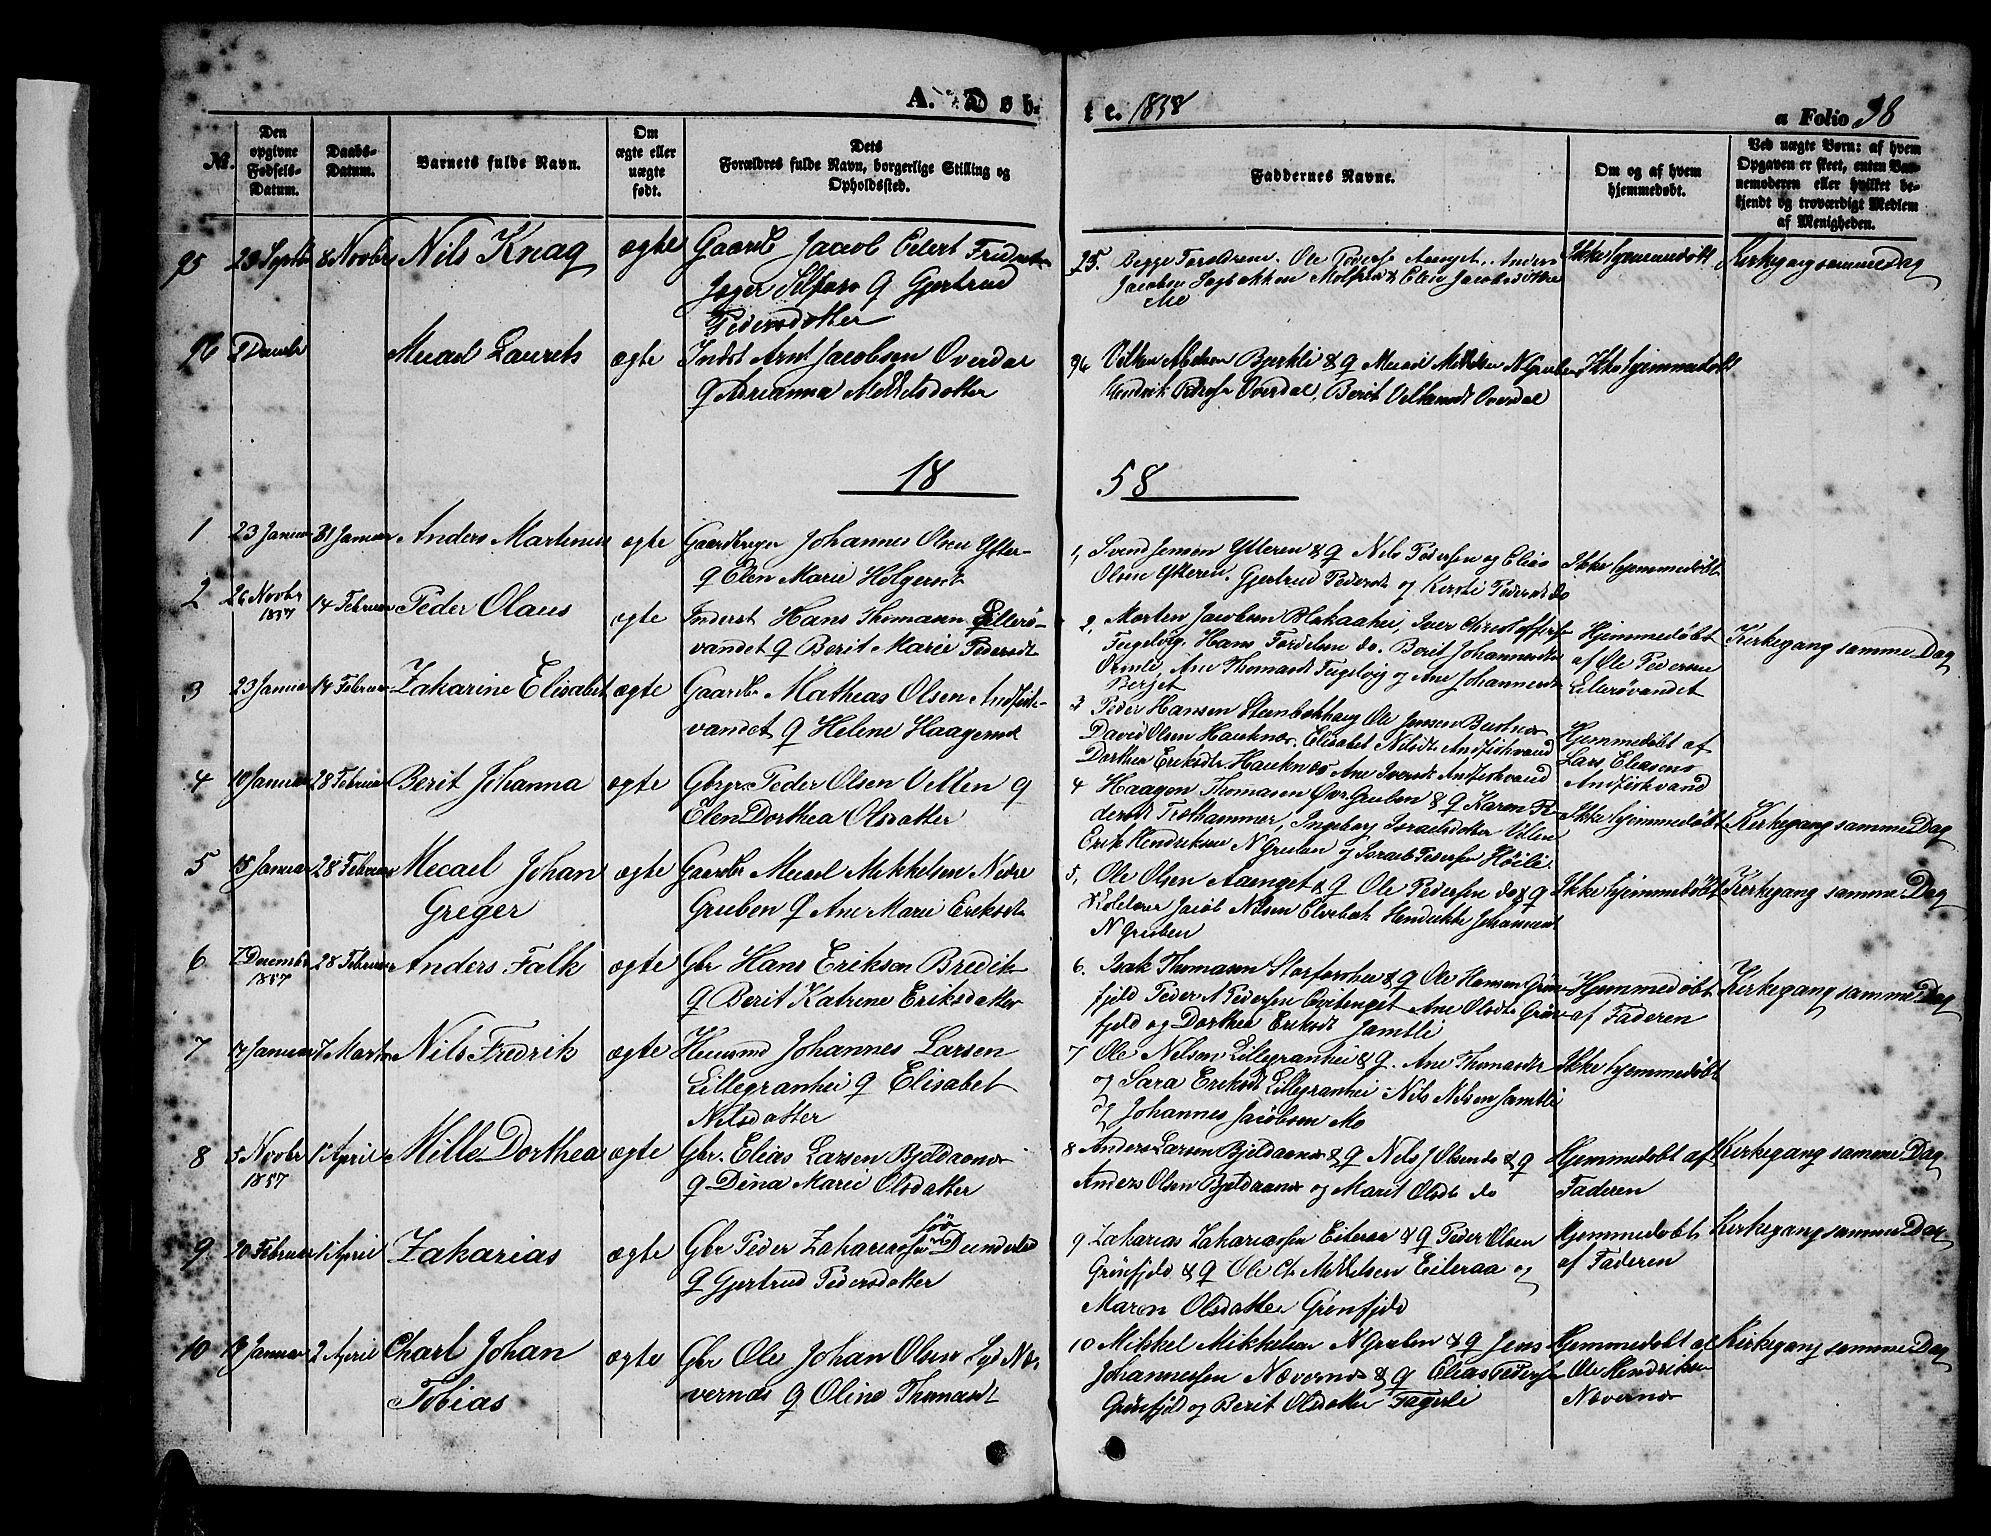 A. Døb-
te. 1858
a Folio 98
Nr.
Den opgivne Fødsels-Datum.
Daabs-Datum.
Barnets fulde Navn.
Om ægte eller uægte født.
Dets Forældres fulde Navn, borgerlige Stilling og Opholdssted.
Faddernes Navne.
Om og af hvem hjemmedøbt.
Ved uægte Børn: af hvem Opgaven er skeet, enten Barnemoderen eller hvilket bekjendt og troværdigt Medlem af Menigheden.
95 29 Septb 8 Novbr Nils Knag ægte Gaardb Jacob Eilert Fridrik
Jæger Selfors & Gjertrud
Pedersdatter
95. Begge Forældrene. Ole Peders Aanget. Anders
Jacobsen Sagbakken & Elen Jacobsdatter
Mo
Ikke hjemmedøbt Kirkegang samme Dag
96 Decmb Micael Laurets ægte Indst Arnt Jacobsen Overdal
& Adrianna Mekkelsdatter
96 Abelsen Bjerkli & & Micael Mekkelsen N Gruben
Hendrik Peders Overdal, Berit Overdal
Ikke hjemmedøbt
18
58
1 23 Januar 31 Januar Anders Martinus ægte Gaardbruger Johannes Olsen Ytter-
& Elen Marie Holgersdt
1, Svend Jensen Ytteren & & Nils Pedersen og Elias
Olsen Ytteren. Gjertrud Pedersdt og Kirsti Pedersdt do
Ikke hjemmedøbt
2 26 Novbr
1857
14 Februar Peder Olaus ægte Inderst Hans Thomasen Lillerø-
vandet & Berit Marie Pedersdt
2, Morten Jacobsen Blakaahei, Iver Christoffers
Fugelvig. Hans Fordelsen do. Berit Johannesdt
Ormli Ane Thomasdt Fugelvig og Ane Johannesdt
Berjet
Hjemmedøbt
af Ole Pedersen
Lillerøvandet
Kirkegang samme Dag
3 23 Januar 14 Februar Zakarine Elisabet ægte Gaardbr Mathias Olsen Andfisk-
vandet & Helene Haagensdt
3 Peder Hansen Steinbekhaug Ole Jensen Bustnes
David Olsen Hauknes. Elisabet Nilsdt Andfiskvand
Dorthea Eriksdt Hauknes Ane Iversdt Andfiskvand
Hjemmedøbt af
Lars Eliasen
Andfiskvand
4 19 Januar 28 Februar Berit Johanna ægte Gbrgr. Peder Olsen Vellen &
Elen Dorthea Olsdatter
4 Haagen Thomasen Øvr. Gruben & & Karen Pe-
dersdt Trolhammer, Ingeborg Israelsdatter
Erik Hendriksen N Gruben og Israel Pedersen Høili
Ikke hjemmedøbt Kirkegang samme Dag
5 15 Januar 28 Februar Mecael Johan
Greger
ægte Gaardbr Micael Mekkelsen Nedre
Gruben & Ane Marie Eriksdt
5, Ole Olsen Aanget & & Ole Pedersen do & &
Jacob Nilsen Elvebak Hendrikke Johannesdt
N Gruben
Ikke hjemmedøbt Kirkegang samme Dag
6 7 Decembr
1857
28 Februar Anders Falk ægte Gbr Hans Erikson Bredik
& Berit Katrine Eriksdatter
6. Isak Thomasen Storforshei & & Ole Hansen Grøn-
fjeld Peder N Pedersen Ane Olsdt Grøn-
fjeld og Dorthea Eriksdt Jamtli
Hjemmedøbt
af Faderen
Kirkegang samme Dag
7 17 Januar 7 Marts Nils Fredrik ægte Huusmd Johannes Larsen
Lillegranhei & Elisabet
Nilsdatter
7 Ole Nelsen Lillegranhei & &. Ane Thomasdt
og Sara Eriksdt Lillegranhei Nils Nilsen Jamtli
og Johannes Jacobsen Mo
Ikke hjemmedøbt
8 5 Novbr
1857
1 April Mille Dorthea ægte Gbr. Elias Larsen Bjeldaanes
& Dina Marie Olsdatter
8 Anders Larsen Bjeldaanes & & Nils J Olsen do & &
Anders Olsen Bjeldaanes og Maret Olsdt do
Hjemmedøbt af
Faderen
Kirkegang samme Dag
9 20 Februar 1 April Zakarias ægte Gbr Peder Zakariassen Dunderland
& Gjertrud Pedersdatter
9 Zakarias Zakariassen Eiteraa & & Peder Olsen
Grønfjeld & & Ole Ch Mekkelsen Eiteraa og
Maren Olsdatter Grønfjeld
Hjemmedøbt
af Faderen
Kirkegang samme Dag
10 19 Januar 2 April Charl Johan
Tobias
ægte Gbr Ole Johan Olsen Lyd Næ-
vernes & Oline Thomasdt
10 Mikkel Mikkelsen N Gruben & & Jens
Johannessen Nævernes & & Elias Pedersen
Grønfjeld og Berit Olsdatter Fagerli
Hjemmedøbt af
Ole Hendriksen
Nævernes
Kirkegang samme Dag